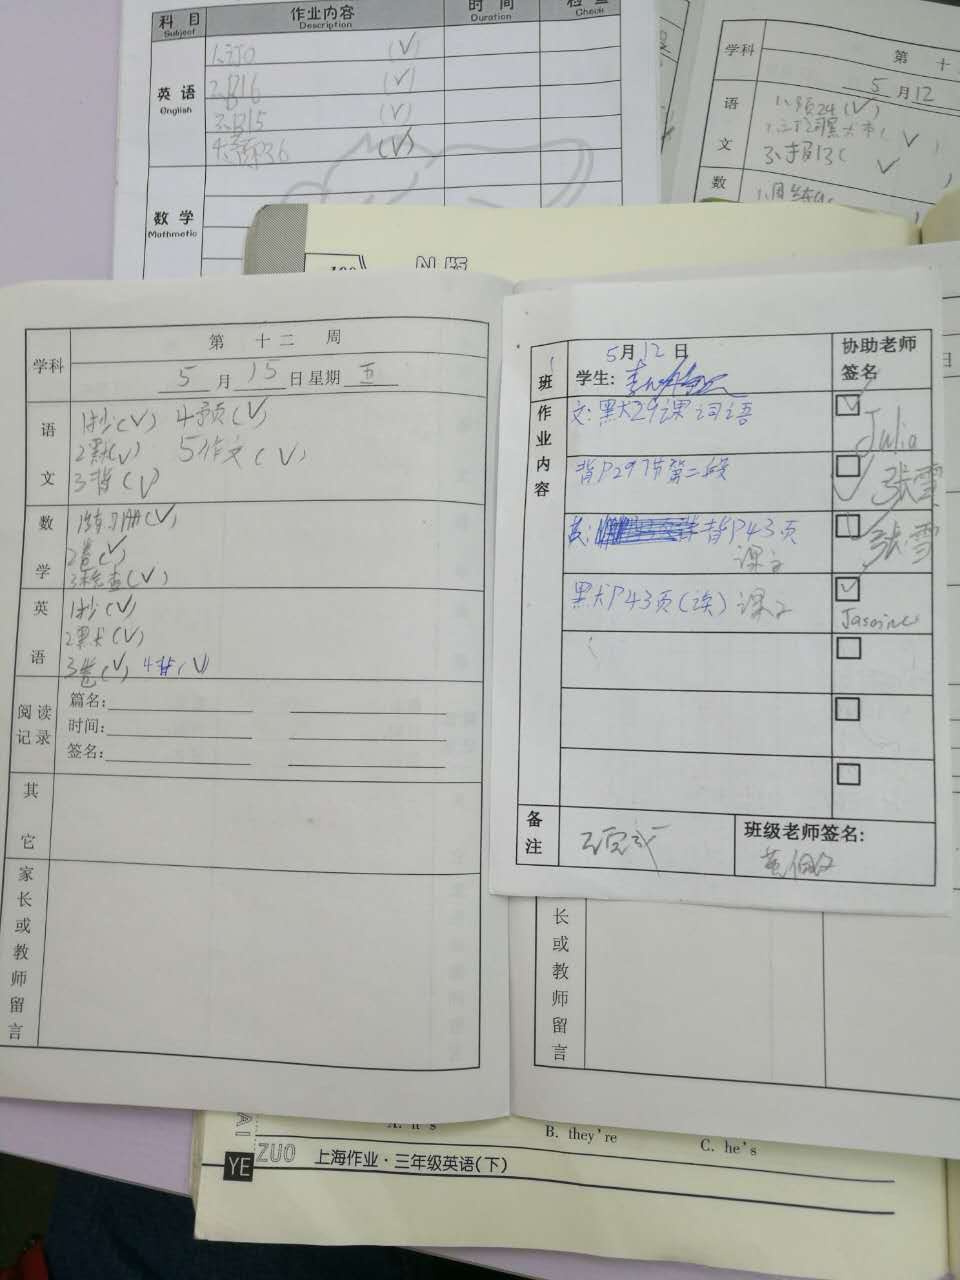 科目 作业内容 时间 检查
Subject Description Duration Check
英语
English
2.B16 (√)
3.B15 (√)
(√)
数学
Mathmetic
学科 第 十
5月12
语文
(√)
√
√
数
第 十二 周
学科
5月15日 星期五
语文
1抄(√) 4预(√)
2默(√) 5作文(√)
3背(√)
数学
1练习册(√)
2卷(√)
3检查(√)
英语
1抄(√)
2默(√)
3卷(√) 4背(√)
阅读记录
篇名:
时间:
签名:
其它
家长或教师留言
5月12日
班 学生:
协助老师签名
作业内容
文:默29课词语
Julia
背P29 第二段
张雪
英: 背P43页
课文
张雪
默P43页(英)课文
备注
班级老师签名:
长或教师留言
B. they're
C. he's
YE ZUO 上海作业·三年级英语(下)